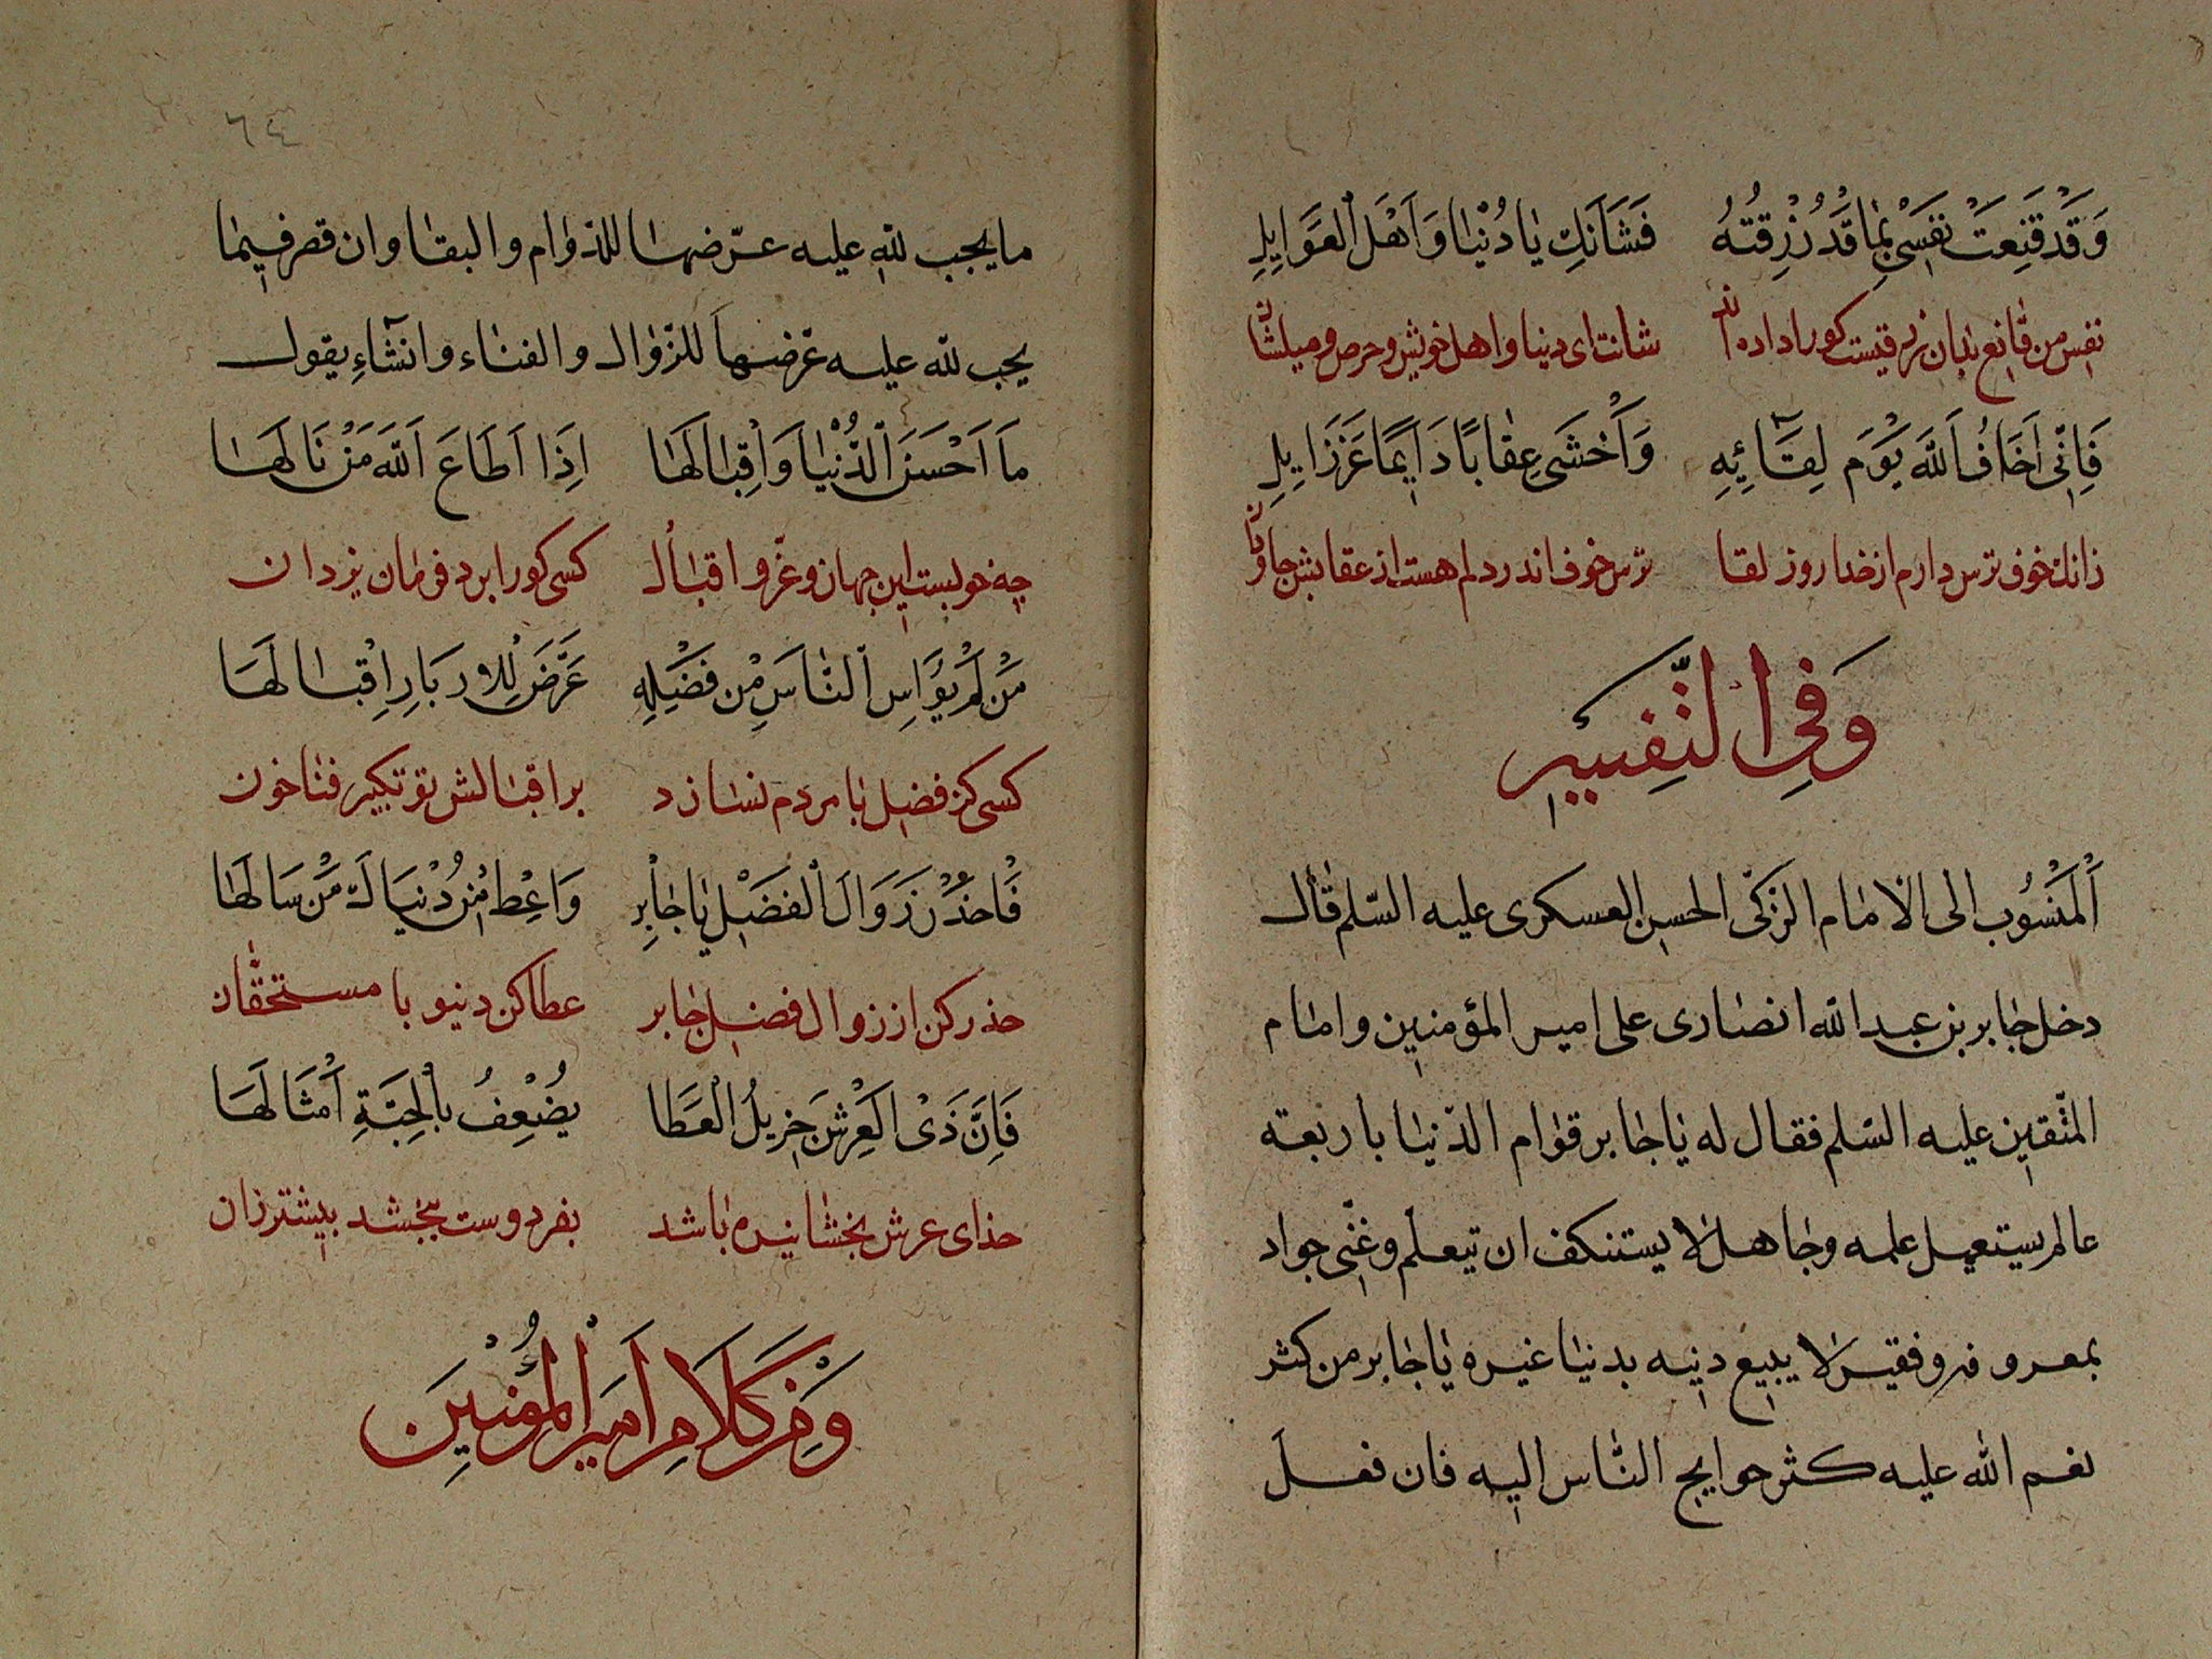 وَقَدْ قَنِعَتْ نَفْسِی بِمَا قَدْ رُزِقْتُهُ فَشَأنَكِ يَا دُنْيَا وَاَهْلَ الْغَوَايِلِ
نفس من قانع بدان رزقیست کورا داده اند شانت ای دنیا و اهل خویش و حرص و میلشان
فَاِنّی اَخَافُ اللهَ يَوْمَ لِقَآئِهِ وَاَخْشَى عِقَابًا دَايِمًا غَرَزَايِلِ
زانك خوف ترس دارم از خدا روز لقا ترس خوف اندر دلم هست از عقابش جاودان
وَفِی التَّفْسِيرِ
اَلْمَنْسُوب الى الامام الزكّى الحسن العسكرى عليه السّلم قال
دخل جابر بن عبد الله انصارى على امير المؤمنين و امام
المتّقين عليه السّلم فقال له يا جابر قوام الدّنيا باربعة
عالم يستعمل علمه و جاهل لا يستنكف ان تيعلّم و غنّى جواد
بمعروفه و فقير لا يبيع دينه بدنيا غيره يا جابر من كثر
نعم الله عليه كثر حوايج النّاس اليه فان فعل
٦٤
ما يجب لله عليه عرّضها للدّوام و البقا و ان قصر فيما
يجب لله عليه عرّضها للزّوال و الفناء و انشاء يقول
مَا اَحْسَنَ الدُّنْيَا وَ اِقْبَالَهَا اِذَا اَطَاعَ اَللهَ مَنْ نَالَهَا
چه خوبست این جهان و عزّ و اقبال کسی کورا برد فرمان یزدان
مَنْ لَمْ يُوَاسِ النَّاسَ مِنْ فَضْلِهِ عَرَّضَ لِلاِدبَارِ اِقْبَالَهَا
کسی کز فضل با مردم نسازد بر اقبالش تو تکبیر فنا خون
فَاحْذَرْ زَوَالَ الْفَضْلِ يَا جَابِرِ وَاعْطِ مِنْ دُنْيَاكَ مَنْ سَالَهَا
حذر کن از زوال فضل جابر عطا کن دنیو با مستحقّان
فَاِنَّ ذَى الْعَرْشِ جَزِيلُ الْعَطَا يُضْعِفُ بِالْحَبَّةِ اَمْثَالَهَا
خدای عرش بخشانیده باشد بفردوست ببخشد بیشتر زان
وَ مِنْ كَلَامِ اَمِيرِ الْمُؤْمِنِينَ